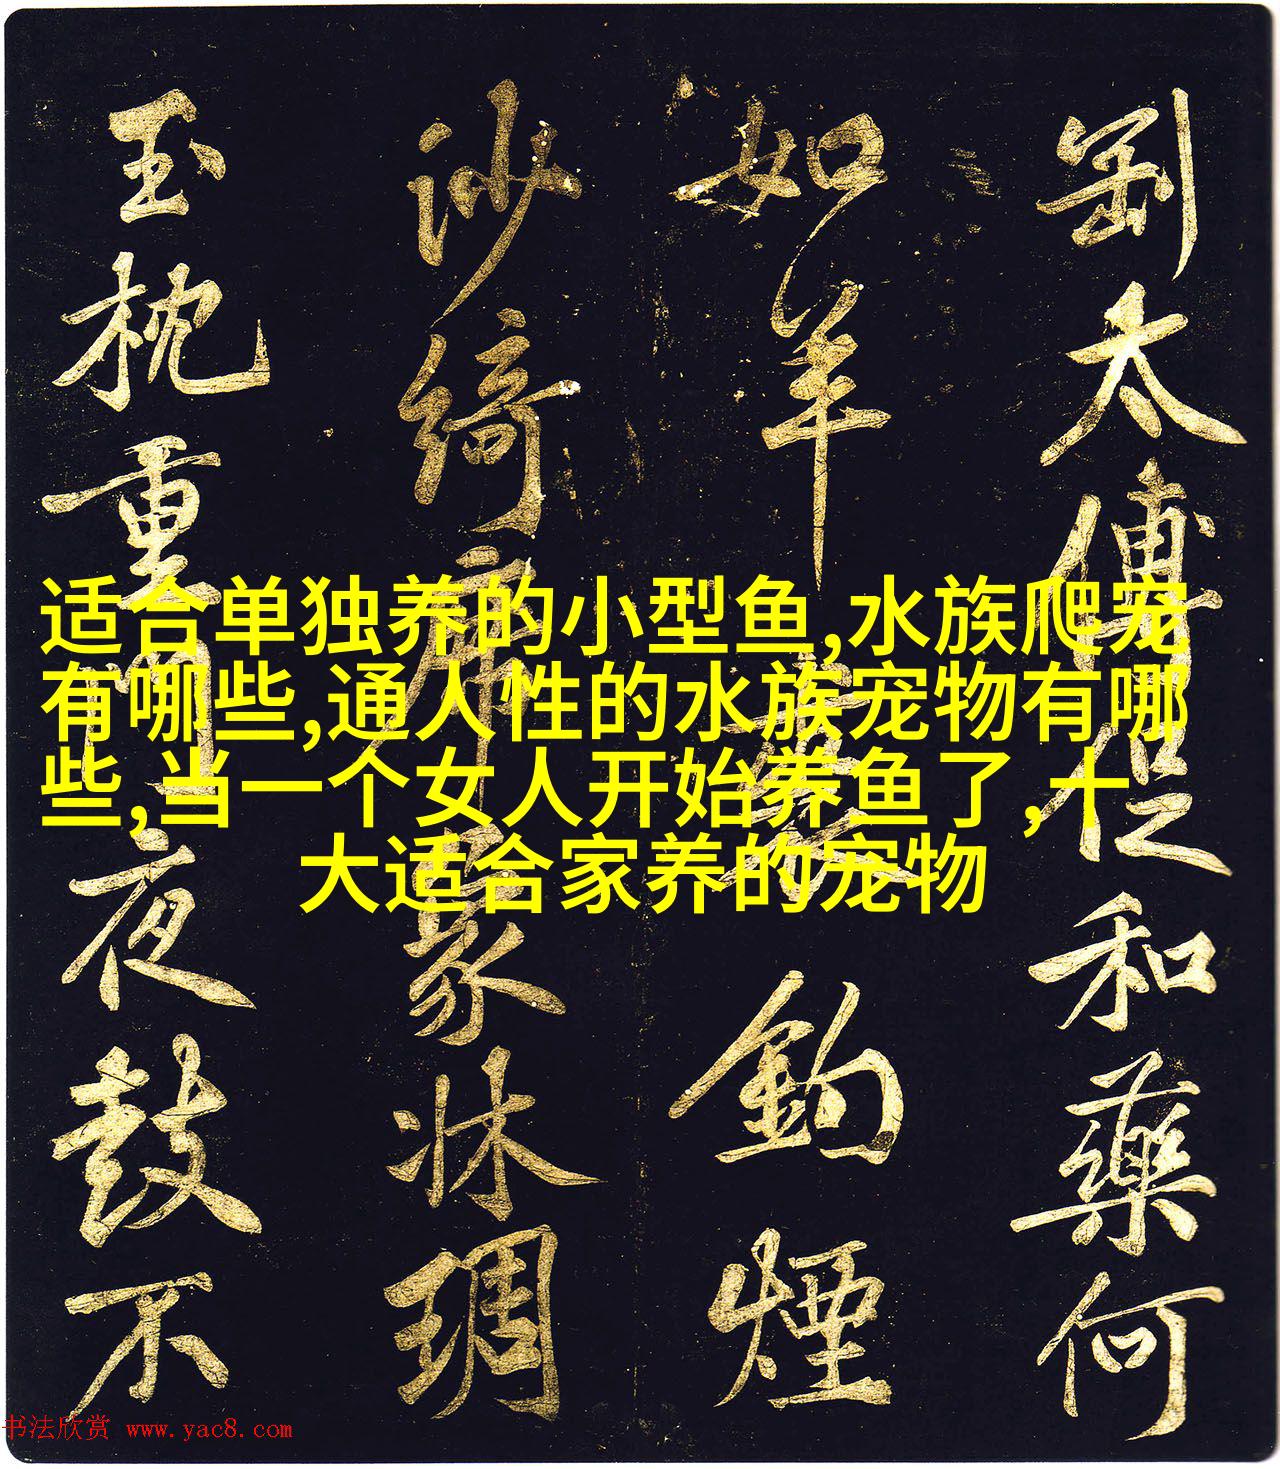 适合单独养的小型鱼,水族爬宠
有哪些,通人性的水族宠物有哪
些,当一个女人开始养鱼了,十
大适合家养的宠物
太傅和藥何
如羊鈎煙
沙綺席象牀琱
玉枕重門夜鼓不
书法欣赏 www.yac8.com